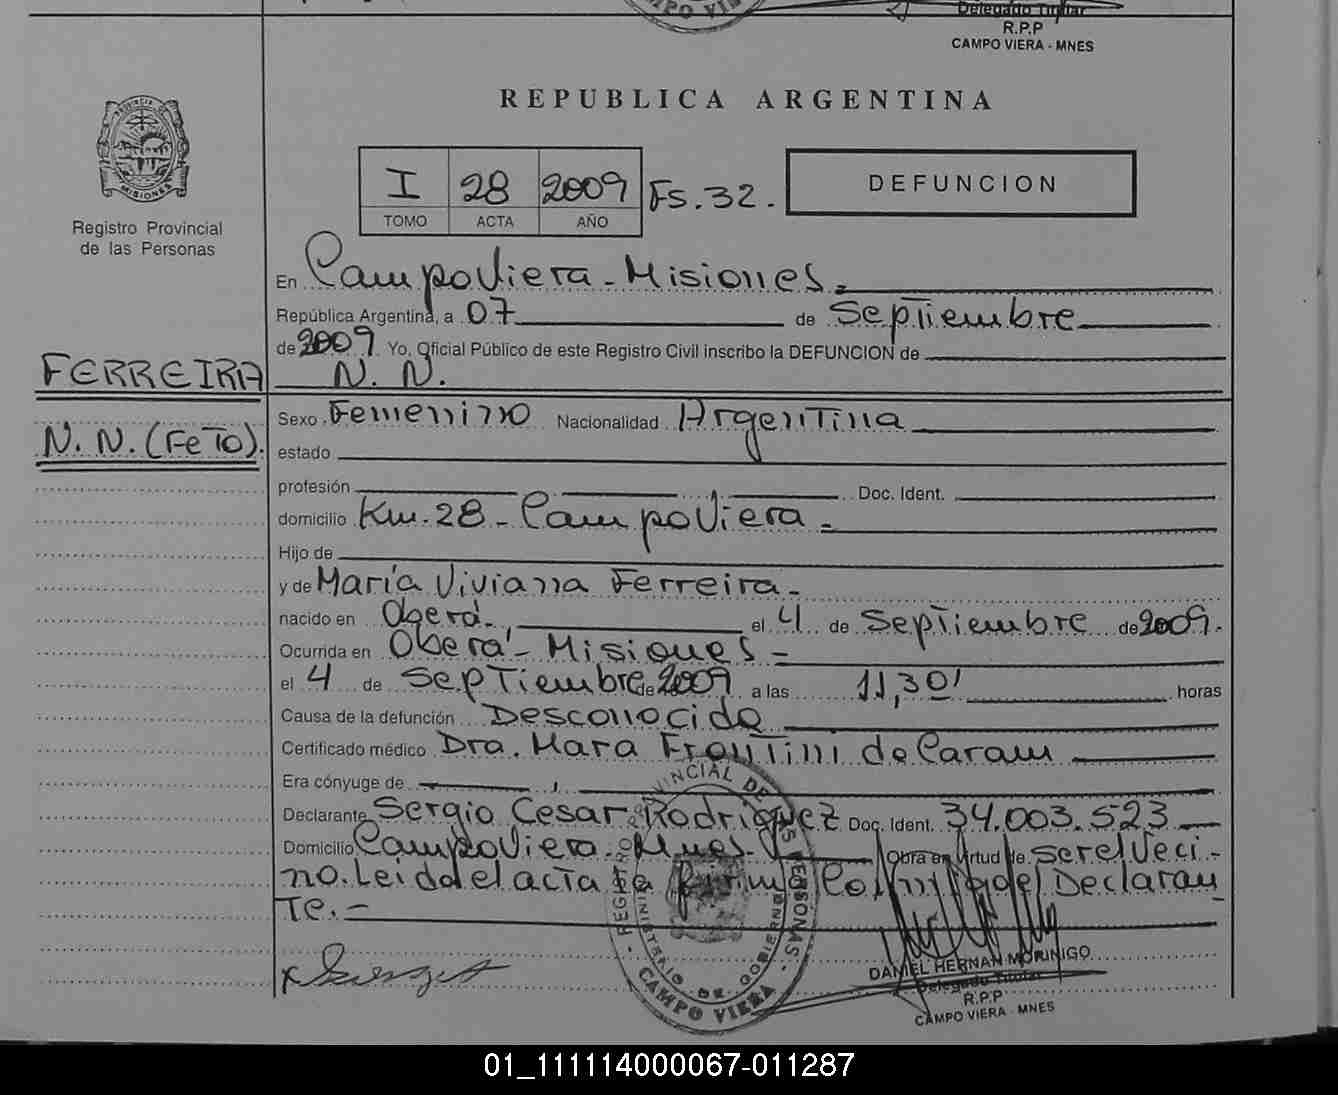 CAMPO VIERA
Delegado Titular
R.P.P
CAMPO VIERA - MNES
PROVINCIA DE MISIONES
Registro Provincial
de las Personas
REPUBLICA ARGENTINA
I 28 2009 Fs. 32.
TOMO ACTA AÑO
DEFUNCION
En Campo Viera - Misiones.
República Argentina, a 07 de Septiembre
de 2009 Yo, Oficial Público de este Registro Civil inscribo la DEFUNCION de
FERREIRA N. N.
N. N. (FeTo).
Sexo Femenino Nacionalidad Argentina
estado
profesión Doc. Ident.
domicilio Km. 28 - Campo Viera -
Hijo de
y de María Viviana Ferreira -
nacido en Oberá. el 4 de Septiembre de 2009.
Ocurrida en Oberá - Misiones -
el 4 de Septiembre de 2009 a las 11,30' horas
Causa de la defunción Desconocida
Certificado médico Dra. Mara Frontini de Caram
Era cónyuge de
Declarante Sergio Cesar Rodriguez Doc. Ident. 34.003.523
Domicilio Campo Viera - Mnes. Obra en virtud de ser el Veci-
no. Leida el acta la firma Conmigo el Declaran
Te. -
REGISTRO PROVINCIAL DE LAS PERSONAS
MINISTERIO DE GOBIERNO
CAMPO VIERA
DANIEL HERNAN MORINIGO
Delegado Titular
R.P.P
CAMPO VIERA - MNES
01_111114000067-011287